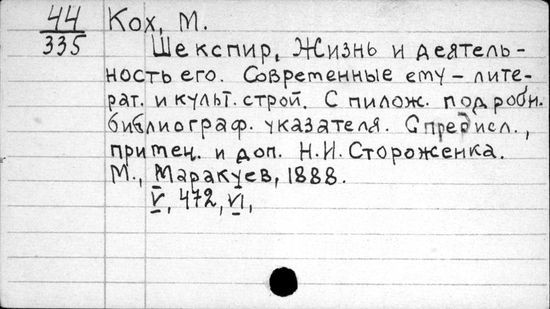 44
335
Кох, М.
Шекспир, Жизнь и деятель-
ность его. Современные ему – лите-
рат. и культ. строй. С пилож. подробн.
библиограф. указателя. С предисл.,
примеч. и доп. Н.И. Стороженка.
М., Маракуев, 1888.
V, 472, VI,